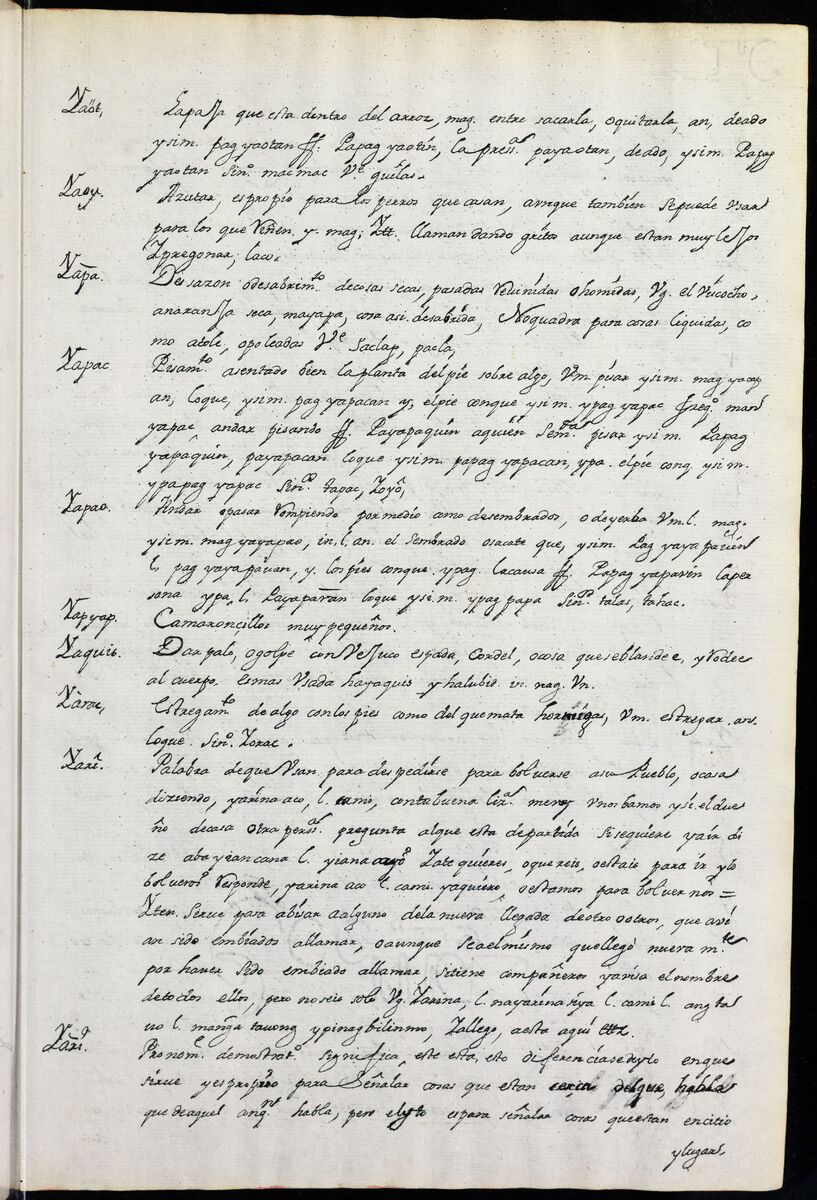 Yaót, La paja que esta dentro del arroz, mag. entre sacarla, o quitarla, an, deado
ysim. pag yaotan ff. Papag yaotin, la pres.ª payaotan, deado, ysim. Papag
yaotan Sin.º macmac V.t guilas.
Yaoy. Azutar, es propio para los perros que casan, aunque tambien se puede Usar
para los que Riñen. y. mag; Ytt. llaman dando gritos aunque estan muy lejos
Ypregonar, taco.
Yapa. Desazon o desabrim.to de cosas secas, pasadas
anaranja seca, mayapa, cosa asi desabrida, No quadra para cosas liquidas, co
mo atole, o poleadas V.e Saclap, pacla,
Yapac Pisam.to asentado bien la planta del pie sobre algo, Vm. pisar ysim. mag yacap
an, loque, ysim. pag yapacan y, el pie conque ysim. ypag yapac Freq.º man
yapac, andar pisando ff. Payapaquin aquien Sem.da pisar ysim. Papag
yapaquin, payapacan loque ysim. papag yapacan, ypa. el pie conq. ysim.
ypapag yapac Sin.º tapac, Yoyó,
Yapao. Andar o pasar rompiendo por medio como de sembrados, o de yerba Vm. l. mag.
ysim. mag yayapao, in. l. an. el Sembrado osacate que, ysim. Pag yaya pauin
l. pag yaya páuan, y. los pies conque. ypag. la causa ff. Papag yapavin la per
sona ypa, l, Payaparan loque ysim. ypag papa Sin.º talas, tahac.
Yapyap. Camaroncillos muy pequeños.
Yaquis. Dar palo, o golpe con Vejuco espada, Cordel, o cosa que se blandee, y Rodee
al cuerpo. Es mas Usada hayaquis y halubid. in. nag. Vn.
Yàrac, Estregam.to de algo con los pies como del que mata hormigas, Vm. estregar. an.
loque. Sin.º Yorac.
Yarî. Palabra de que Usan para despedirse para bolverse a su Pueblo, o casa
diziendo, yarina aco, l. cami, contabuena liz.ª merz y Vnos bamos y si. el due
ño de casa otra pers.ª pregunta alque esta de partida Si se quiere yair di
ze abayeancana l. yiana Yate quieres, o quereis, o estais para ir ylo
bolueros Responde, yarina aco l. cami. ya quiero, o estamos para bolver nos =
Yten. Serue para abisar a alguno dela nueva llegada de otro o otros, que avi
an sido embiados allamar, o aunque sea el mismo que llegó nueva m.te
por haver sido embiado allamar, si tiene compañeros yarisa el nombre
de todos ellos, pero no seis solo Vg. Yarina, l. nayarina siya l. cami l. ang ta
uo l. manga tauong ypinagbilinmo, Yallego, a esta aqui &.
Yari. Pronom.e demostrat.º Significa, este esta, esto diferenciase dyto en que
sirue yes propio para Señalar cosas que estan cerca delque habla
que de aquel anq.n habla, pero elyto es para señalar cosas que estan en citio
y lugar